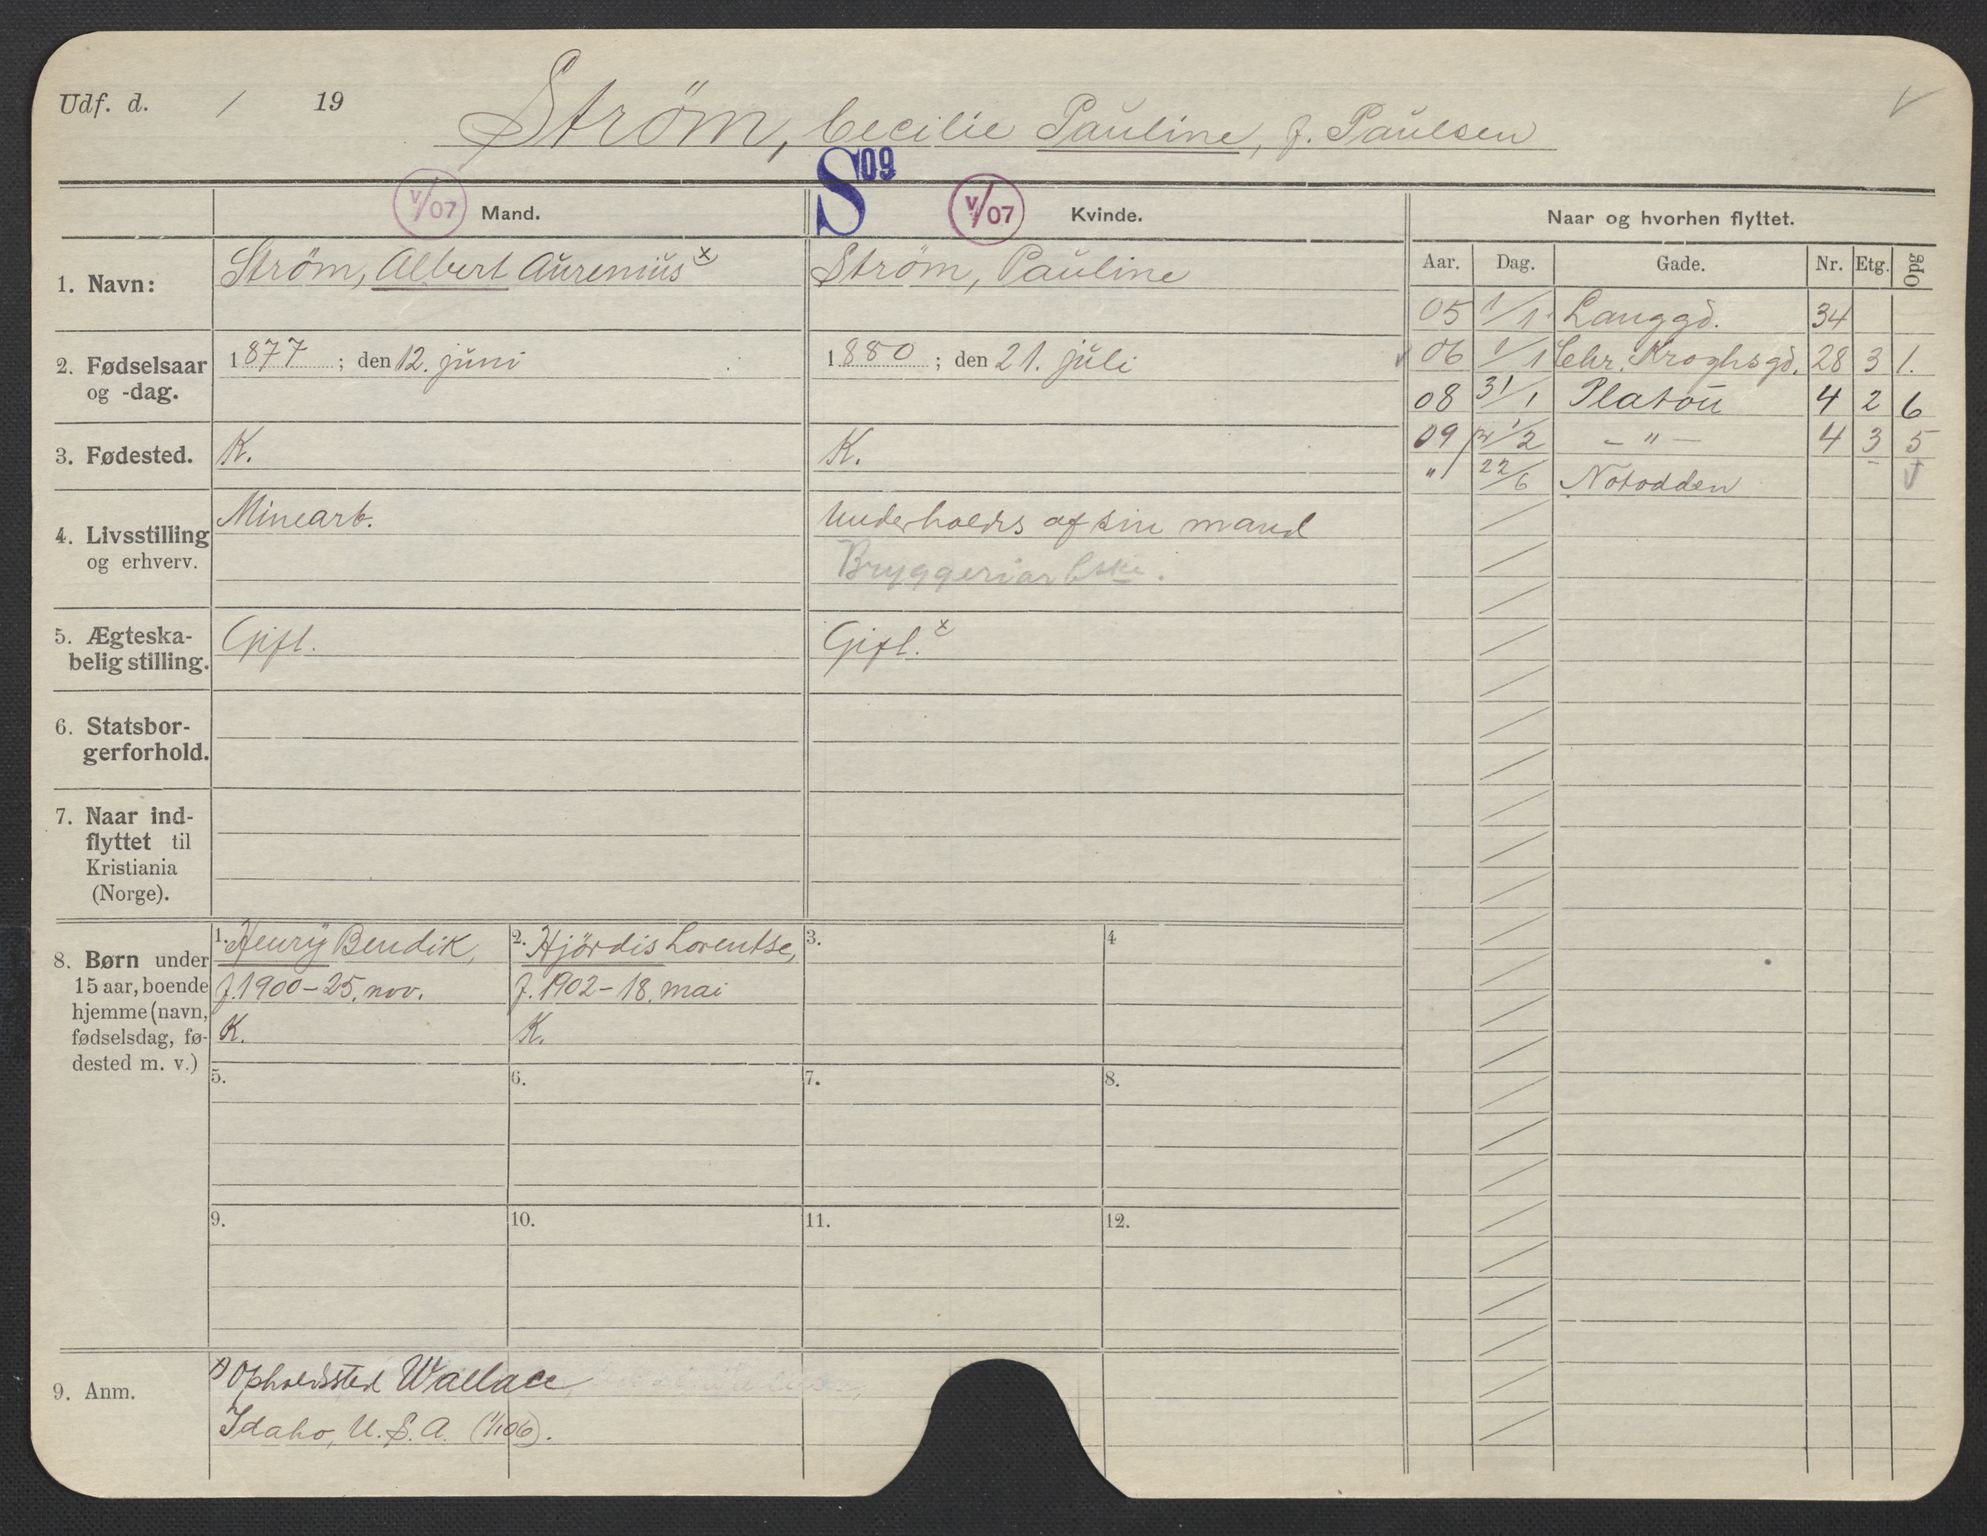 Udf. d. / 19
Strøm, Cecilie Pauline, f. Paulsen
S09
V/07 Mand.
V/07 Kvinde.
Naar og hvorhen flyttet.
Aar. Dag. Gade. Nr. Etg. Opg
1. Navn:
Strøm, Albert Aurenius x
Strøm, Pauline
2. Fødselsaar
og -dag.
1877; den 12. juni
1880; den 21. juli
3. Fødested.
K.
K.
4. Livsstilling
og erhverv.
Minearb.
Underholdes af sin mand
Bryggeriarbske.
5. Ægteska-
belig stilling.
Gift.
Gift. x
6. Statsbor-
gerforhold.
7. Naar ind-
flyttet til
Kristiania
(Norge).
05 1/1 Langgd. 34
06 1/1 Chr. Kroghsgd. 28 3 1.
08 31/1 Platou 4 2 6
09 1/2 – " – 4 3 5
" 22/6 Notodden
8. Børn under
15 aar, boende
hjemme (navn,
fødselsdag, fø-
dested m. v.)
1. Henry Bendik,
f. 1900 – 25. nov.
K.
2. Hjördis Lorentse,
f. 1902 – 18. mai
K.
3.
4
5.
6.
7.
8.
9.
10.
11.
12.
9. Anm.
x) Opholdssted Wallace
Idaho, U.S.A. (1/1 06).